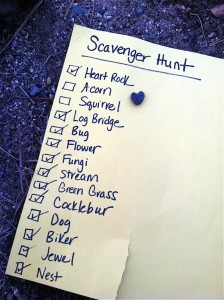 Scavenger Hunt
Heart Rock
Acorn
Squirrel
Log Bridge
Bug
Flower
Fungi
Stream
Green Grass
Cocklebur
Dog
Biker
Jewel
Nest